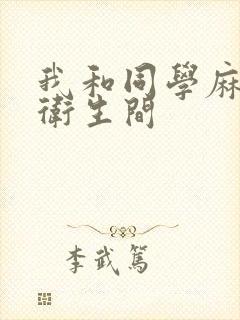 我和同學麻
衛生間
李武篤